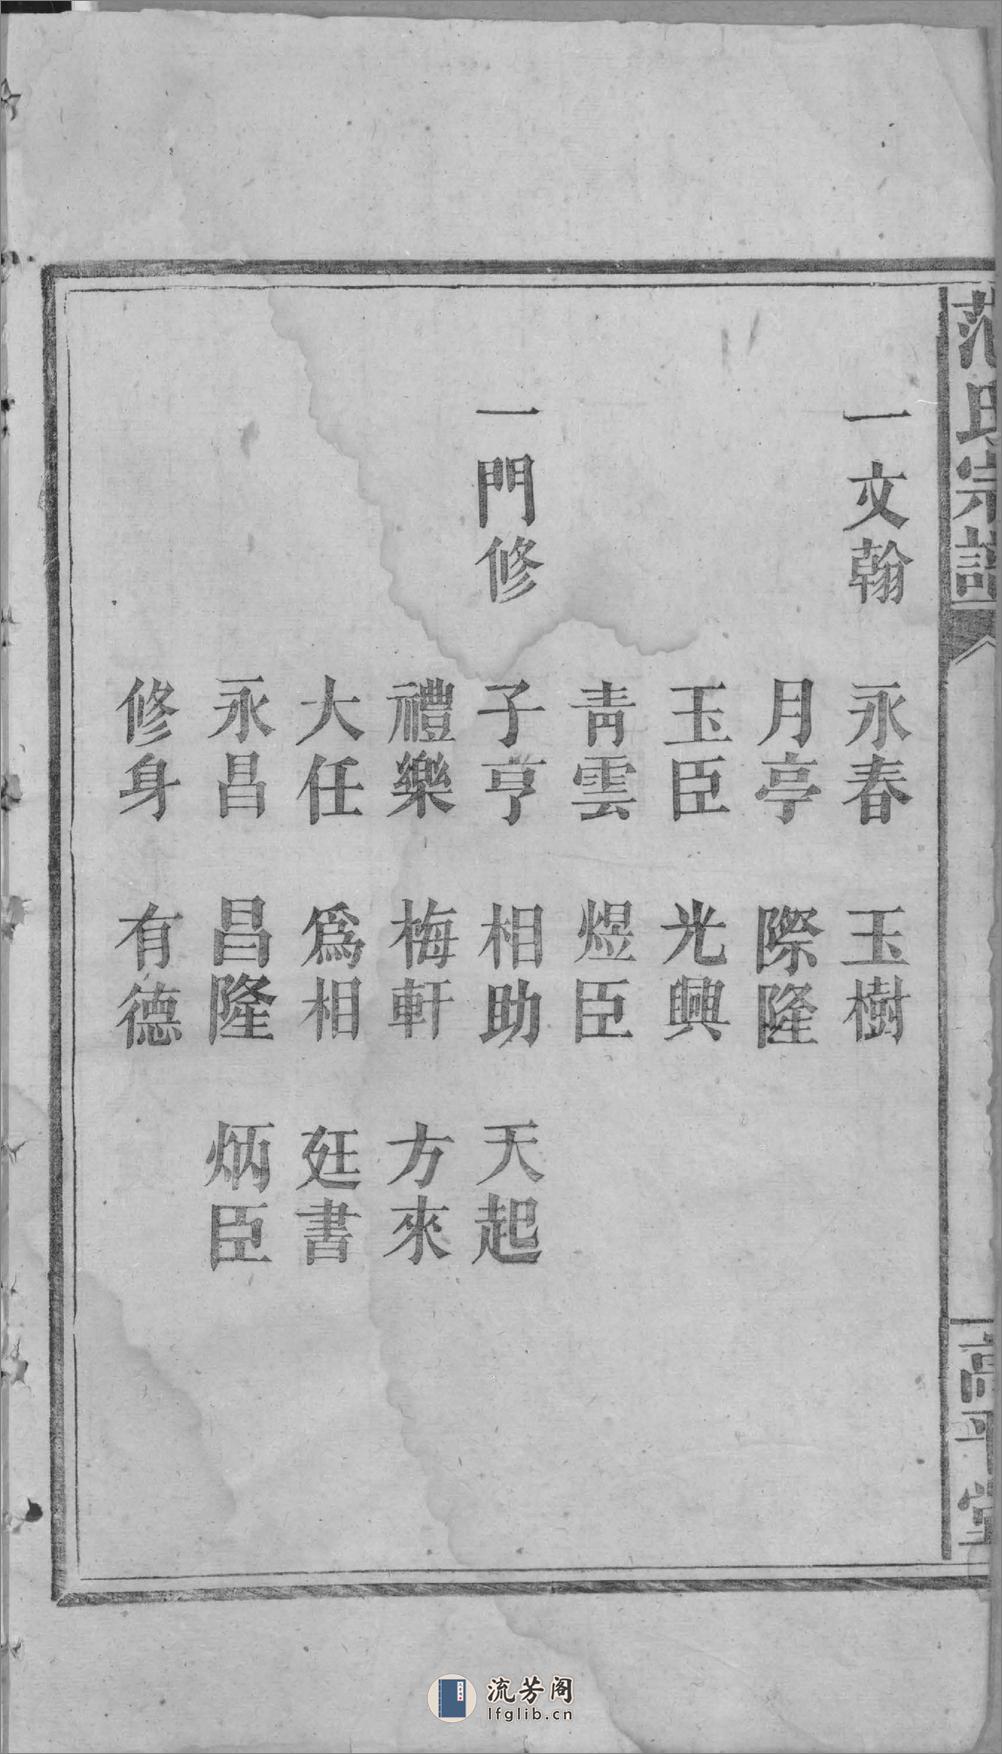 范氏宗譜
高平堂
一文翰 永春 玉樹
月亭 際隆
玉臣 光興
青雲 煜臣
一門修 子亨 相助 天起
禮樂 梅軒 方來
大任 爲相 廷書
永昌 昌隆 炳臣
修身 有德
流芳阁
lfglib.cn